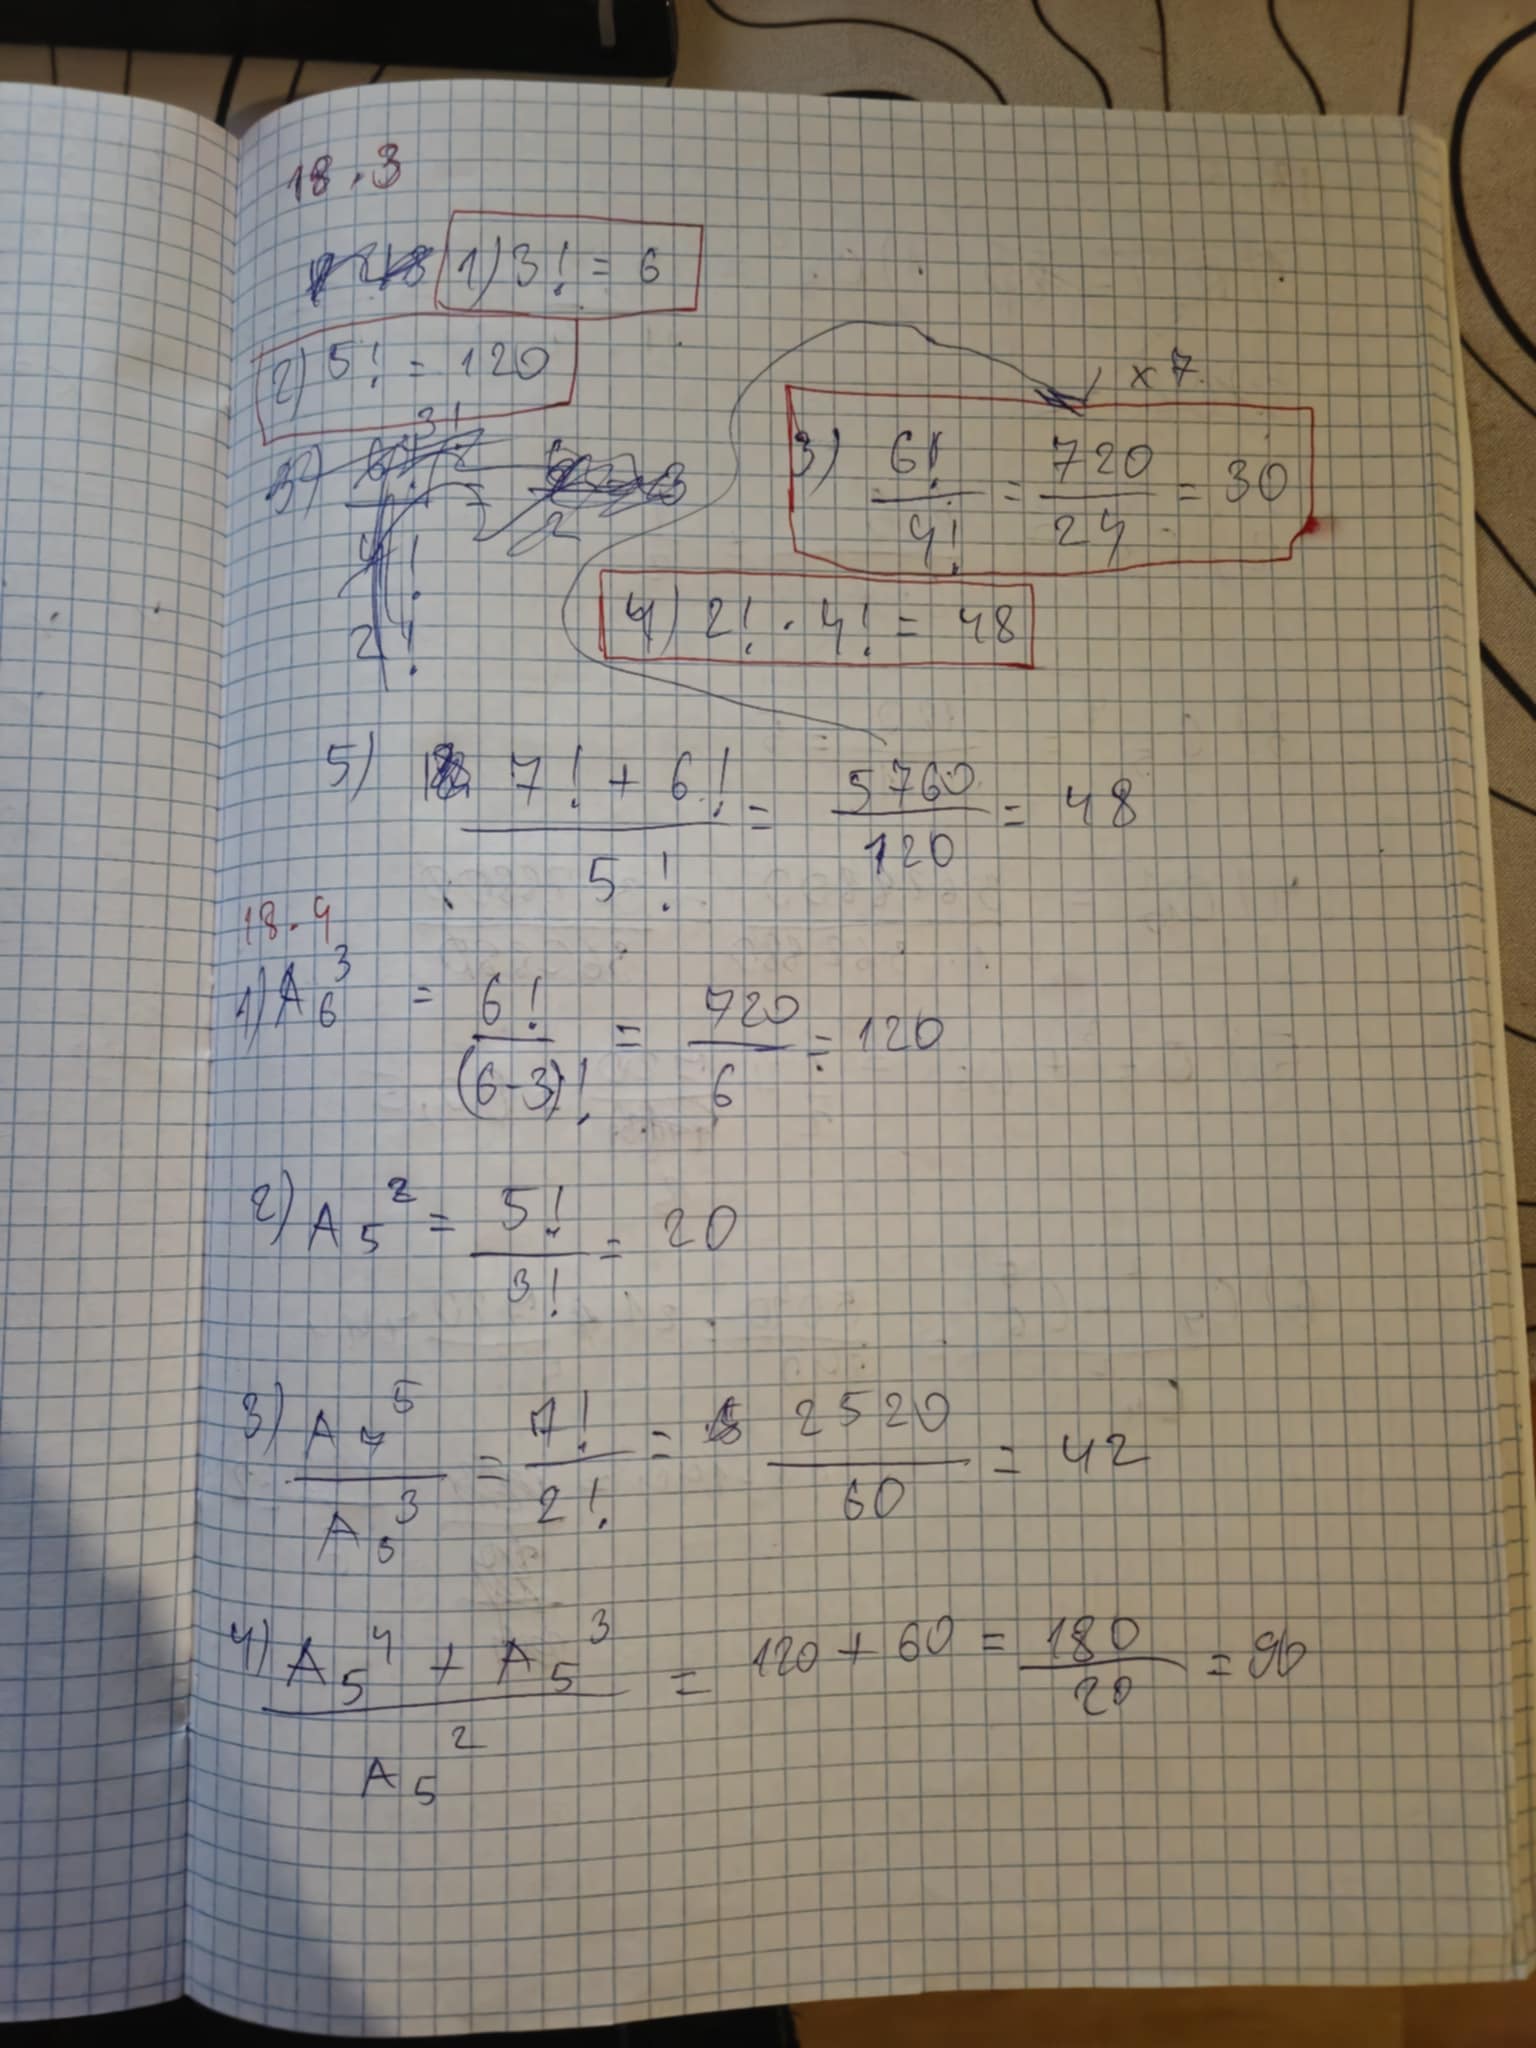 18.3
1) 3! = 6
2) 5! = 120
x 7
3) 6!/4! = 720/24 = 30
4) 2! · 4! = 48
5) (7! + 6!)/5! = 5760/120 = 48
18.4
1) A₆³ = 6!/(6-3)! = 720/6 = 120
2) A₅² = 5!/3! = 20
3) A₇⁵/A₅³ = 7!/2! = 2520/60 = 42
4) (A₅⁴ + A₅³)/A₅² = 120 + 60 = 180/20 = 90